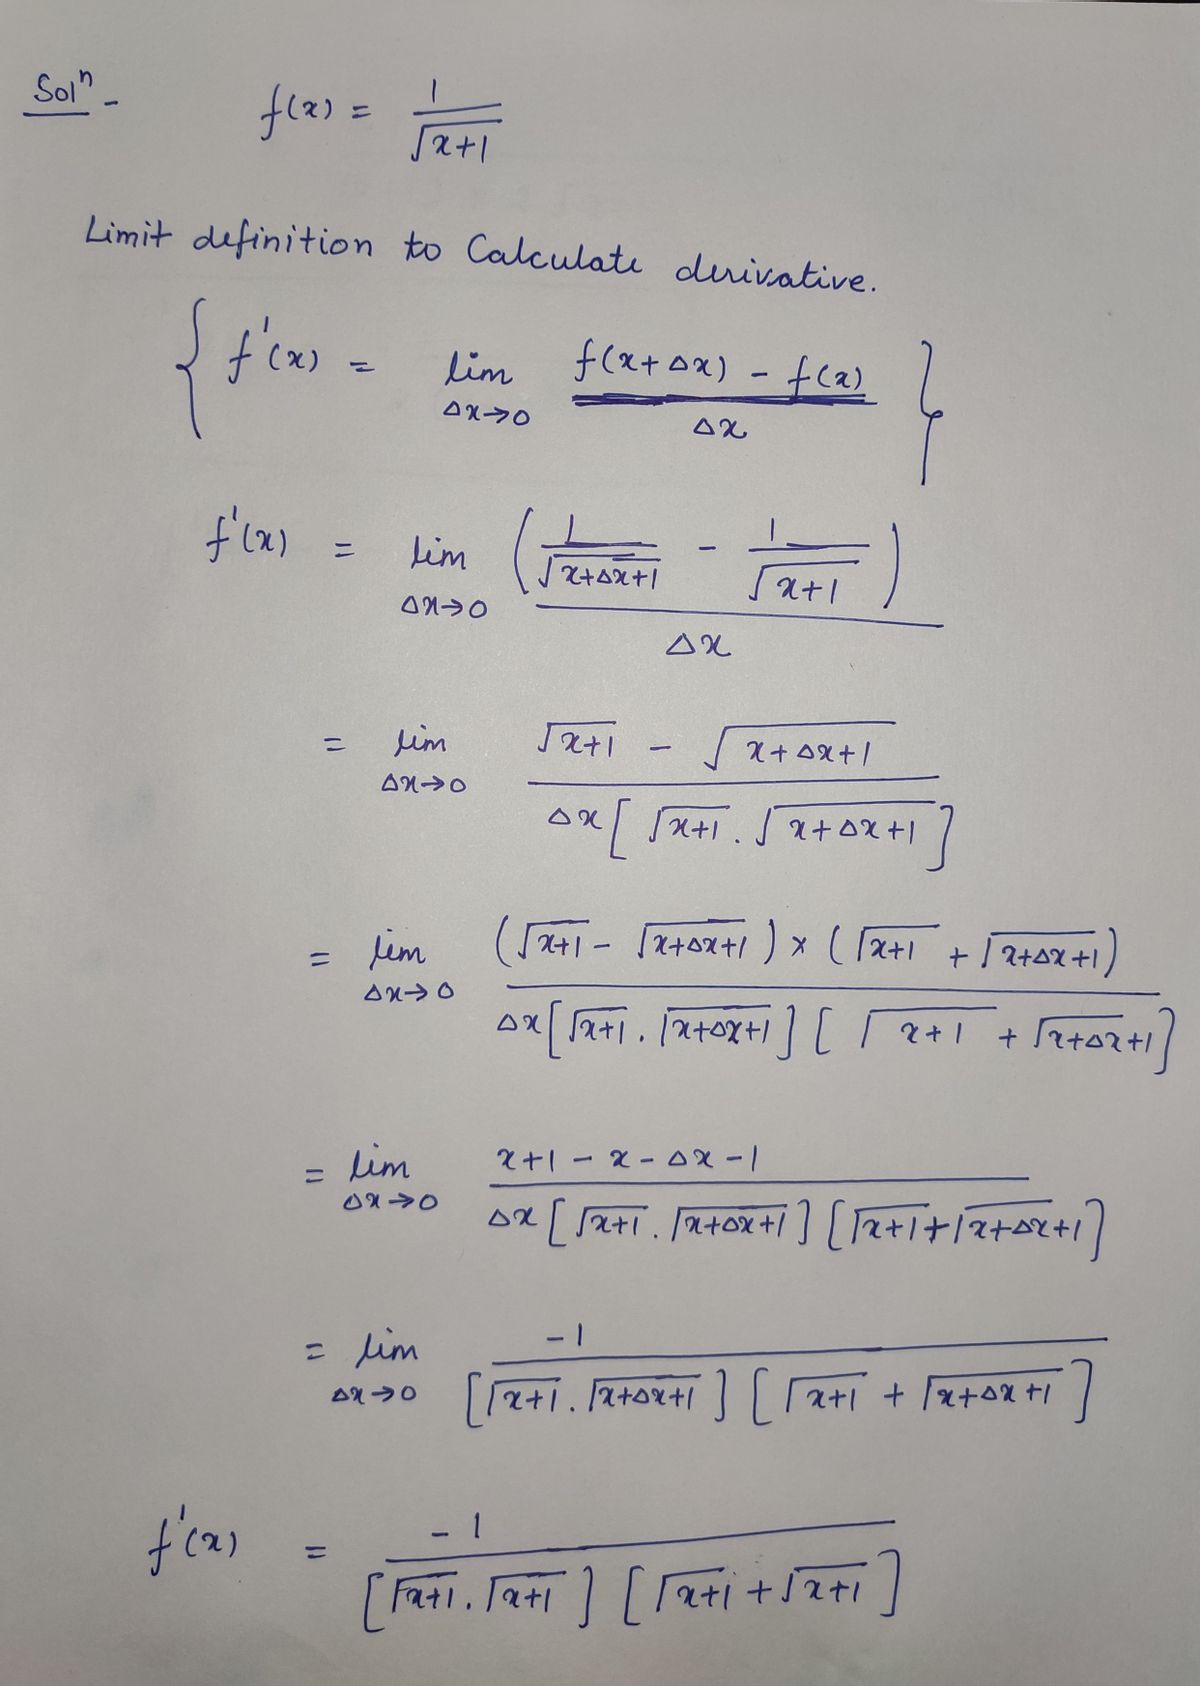 Solⁿ - f(x) = 1/√(x+1)
Limit definition to Calculate derivative.
{ f'(x) = lim Δx→0 (f(x+Δx) - f(x))/Δx }
f'(x) = lim Δx→0 (1/√(x+Δx+1) - 1/√(x+1))/Δx
= lim Δx→0 (√(x+1) - √(x+Δx+1))/(Δx[√(x+1) . √(x+Δx+1)])
= lim Δx→0 ((√(x+1) - √(x+Δx+1)) × (√(x+1) + √(x+Δx+1)))/(Δx[√(x+1) . √(x+Δx+1)][√(x+1) + √(x+Δx+1)])
= lim Δx→0 (x+1 - x - Δx - 1)/(Δx[√(x+1) . √(x+Δx+1)][√(x+1) + √(x+Δx+1)])
= lim Δx→0 -1/([√(x+1) . √(x+Δx+1)][√(x+1) + √(x+Δx+1)])
f'(x) = -1/([√(x+1) . √(x+1)][√(x+1) + √(x+1)])